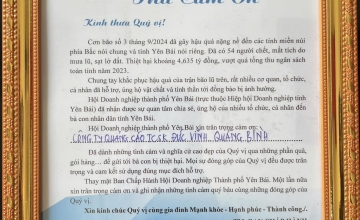 Thư Cảm Ơn
Kính thưa Quý vị!
Cơn bão số 3 tháng 9/2024 đã gây hậu quả nặng nề đến các tỉnh miền núi
phía Bắc nói chung và tỉnh Yên Bái nói riêng. Đã có 54 người chết, mất tích do
mưa lũ, sạt lở đất. Thiệt hại khoảng 4,635 tỷ đồng, vượt quá tổng thu ngân sách
toàn tỉnh năm 2023.
Chung tay khắc phục hậu quả của trận bão lũ trên, rất nhiều cơ quan, tổ chức,
cá nhân đã hỗ trợ, ủng hộ vật chất và tinh thần tới đồng bào bị ảnh hưởng.
Hội Doanh nghiệp thành phố Yên Bái (trực thuộc Hiệp hội Doanh nghiệp tỉnh
Yên Bái) đã nhận được sự quan tâm chia sẻ, ủng hộ của nhiều tổ chức, cá nhân
doanh nhân tỉnh Yên Bái.
Hội Doanh nghiệp thành phố Yên Bái xin trân trọng cảm ơn:
CÔNG TY QUẢNG CÁO TC.SK ĐỨC VINH QUẢNG BÌNH
Đã dành những tình cảm và nghĩa cử cao đẹp của Quý vị qua những phần quà,
gói hàng... để gửi tới bà con bị thiệt hại. Mọi sự đóng góp của Quý vị đều được trân
trọng và cam kết sử dụng đúng mục đích hỗ trợ.
Thay mặt Ban Chấp Hành Hội Doanh Nghiệp Thành phố Yên Bái. Một lần nữa
xin trân trọng cảm ơn và ghi nhận những tình cảm quý báu cùng những đóng góp của
Quý vị.
Xin kính chúc Quý vị cùng gia đình Mạnh khỏe - Hạnh phúc - Thành công./.